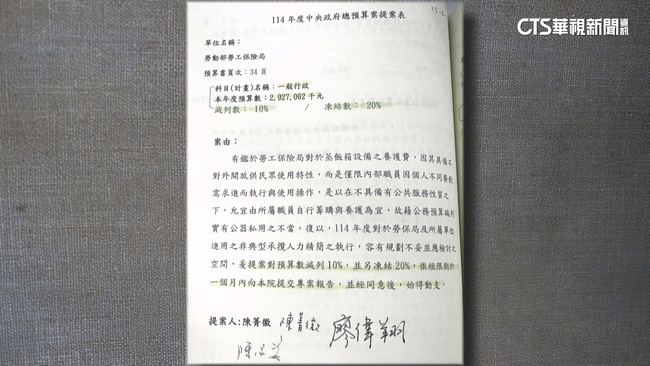 CTS華視新聞資訊
15-2
114年度中央政府總預算案提案表
單位名稱：
勞動部勞工保險局
預算書頁次：34頁
科目(計畫)名稱：一般行政
本年度預算數：2,927,062千元
減列數： 10% / 凍結數： 20%
案由：
有鑑於勞工保險局對於蒸飯箱設備之養護費，因其具備不
對外開放供民眾使用特性，而是僅限內部職員因個人不同餐飲
需求進而執行與使用操作，是以在不具備有公共服務性質之
下，允宜由所屬職員自行籌購與養護為宜，故籍公務預算編列
實有公器私用之不當。復以，114年度對於勞保局及所屬單位
進用之非典型承攬人力精簡之執行，容有規劃不妥並應檢討之
空間，爰提案對預算數減列10%，並另凍結20%，俟經限期於
一個月內向本院提交專案報告，並經同意後，始得動支。
提案人：陳菁徽 陳菁徽 廖偉翔